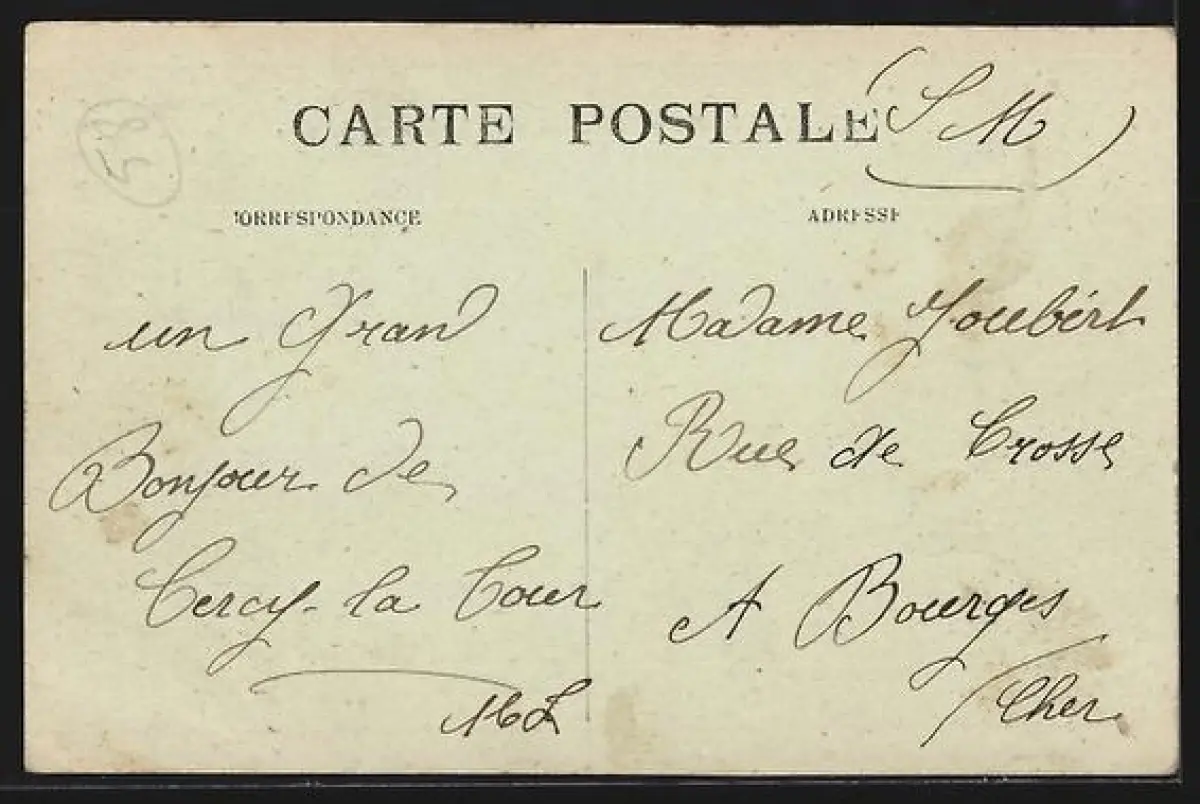 CARTE POSTALE
(S M)
58
CORRESPONDANCE
ADRESSE
un Grand
Bonjour de
Cercy-la Tour
ML
Madame Joubért
Rue de Crosse
A Bourges
Cher